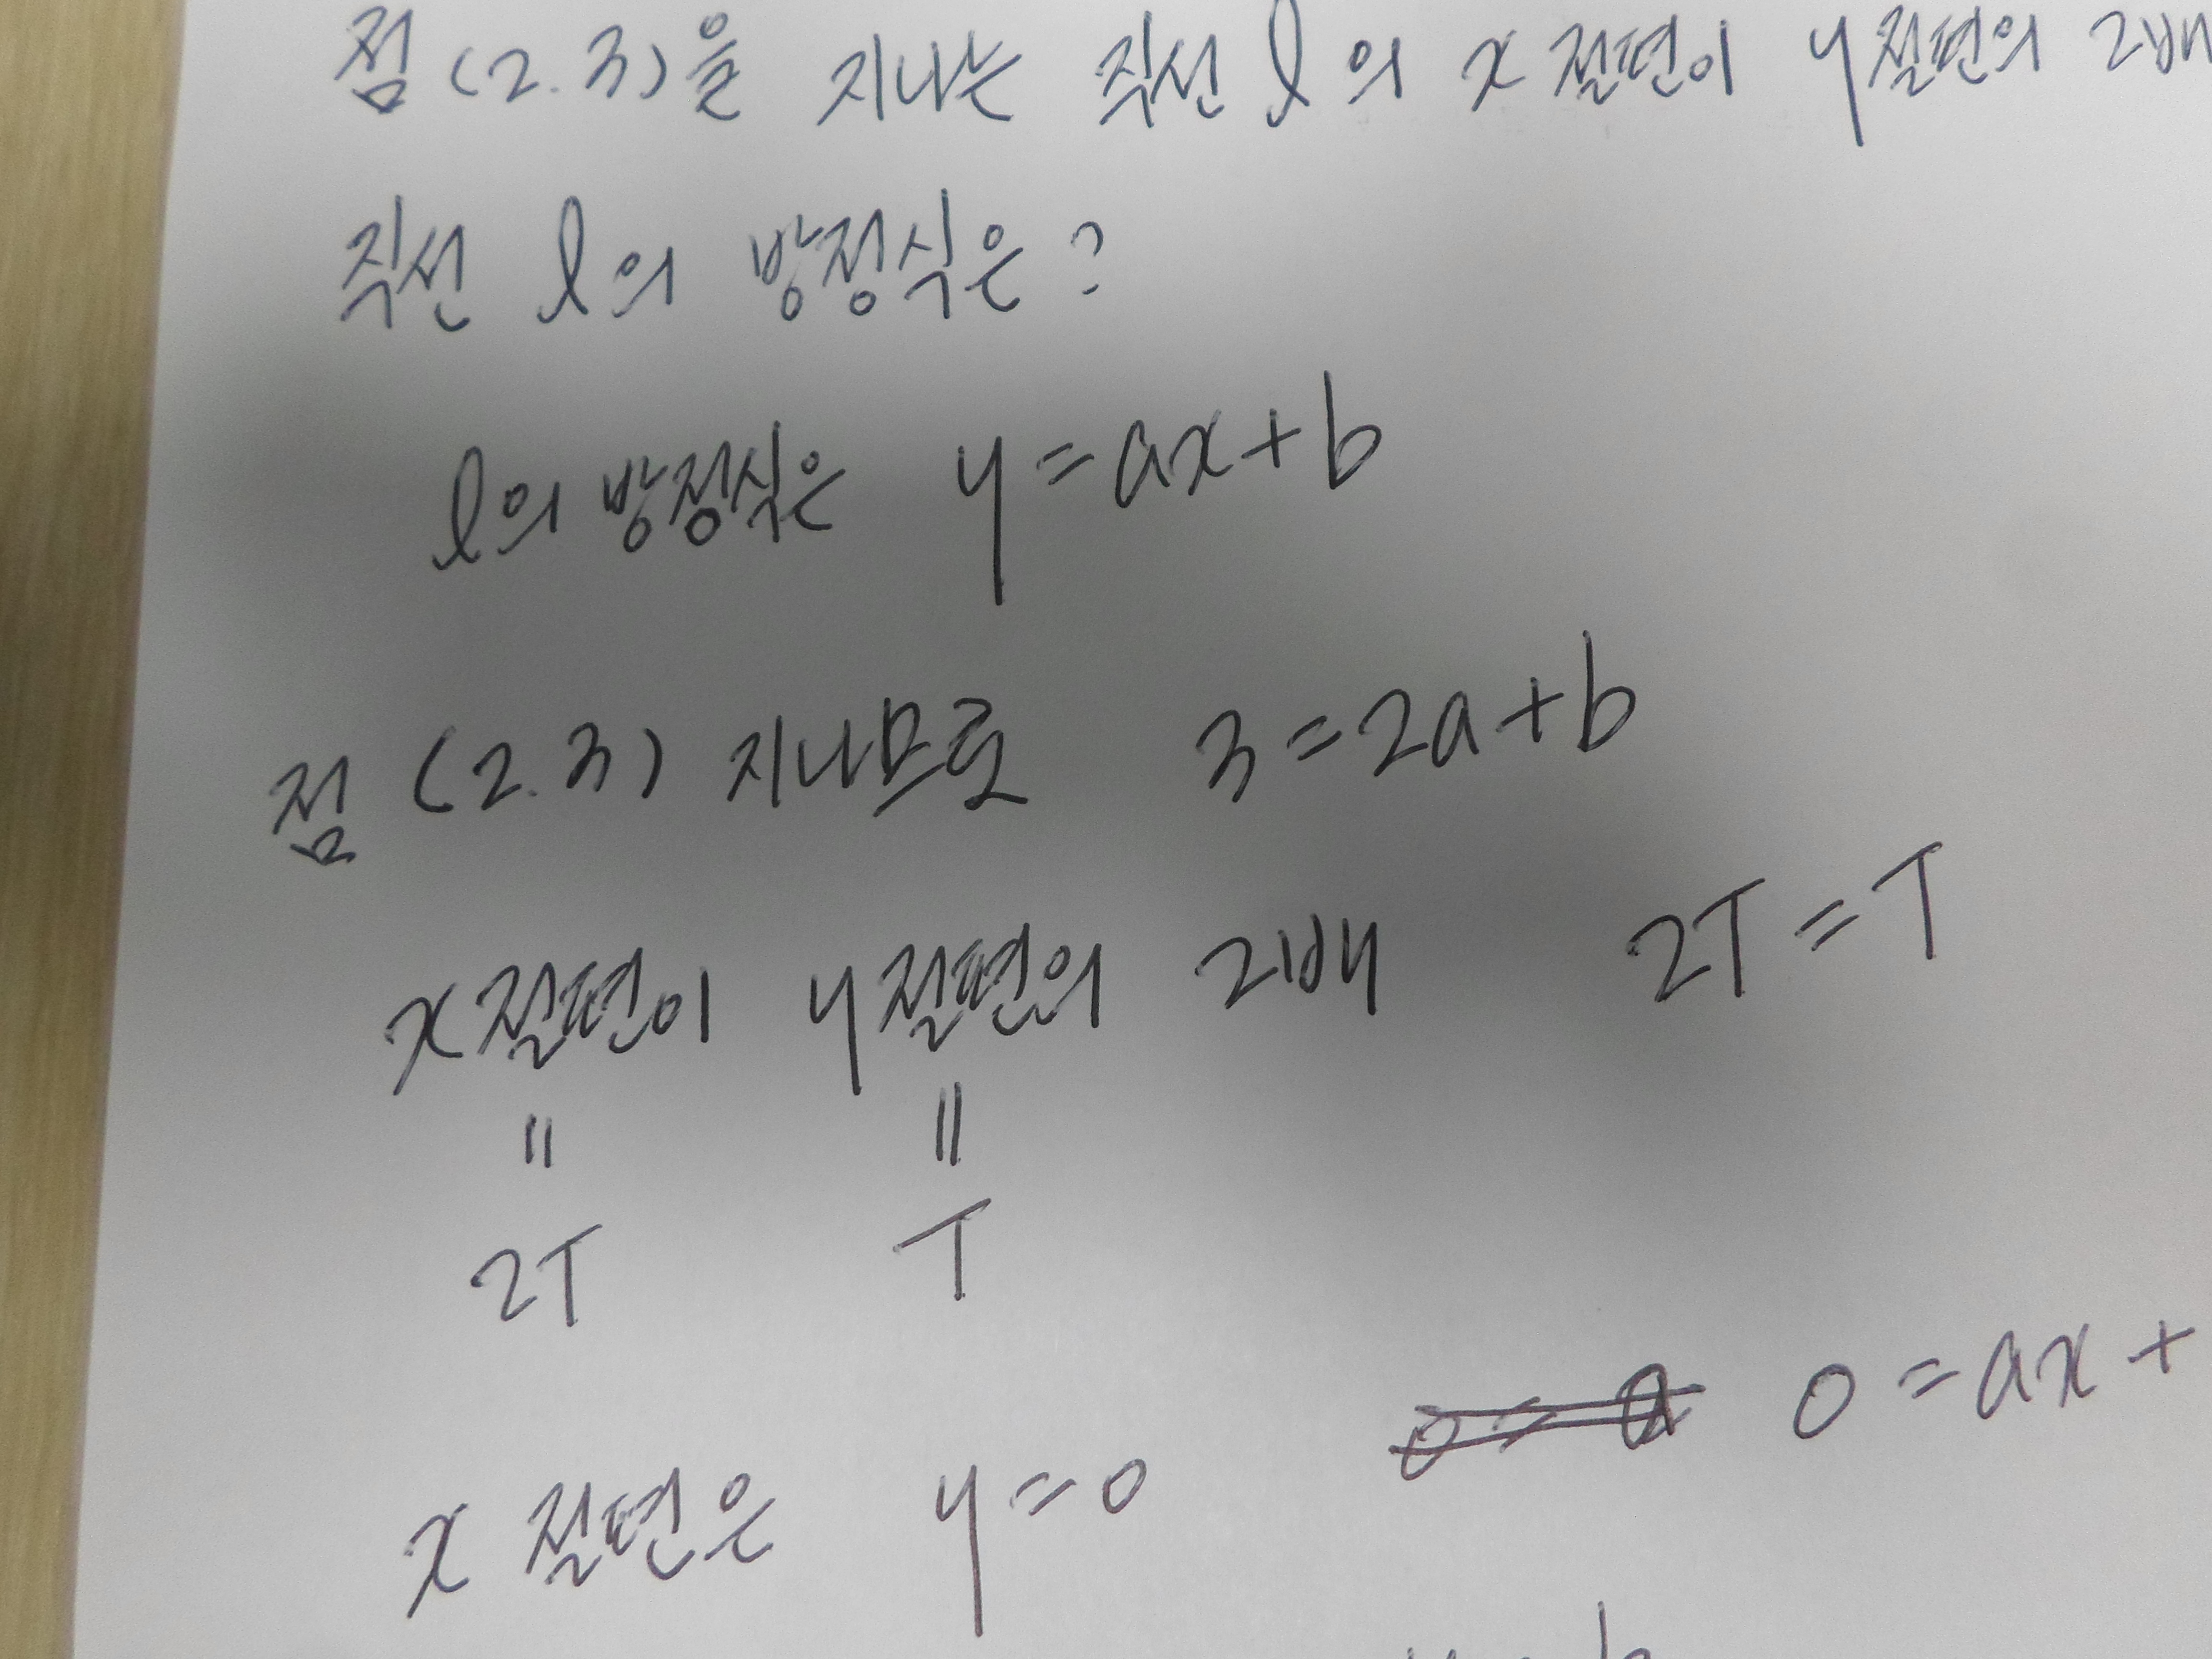 점 (2.3)을 지나는 직선 l의 x절편이 y절편의 2배
직선 l의 방정식은?
l의 방정식은 y=ax+b
점 (2.3) 지나므로 3=2a+b
x절편이 y절편의 2배 2T=T
= =
2T T
0=a 0=ax+
x절편은 y=0
b